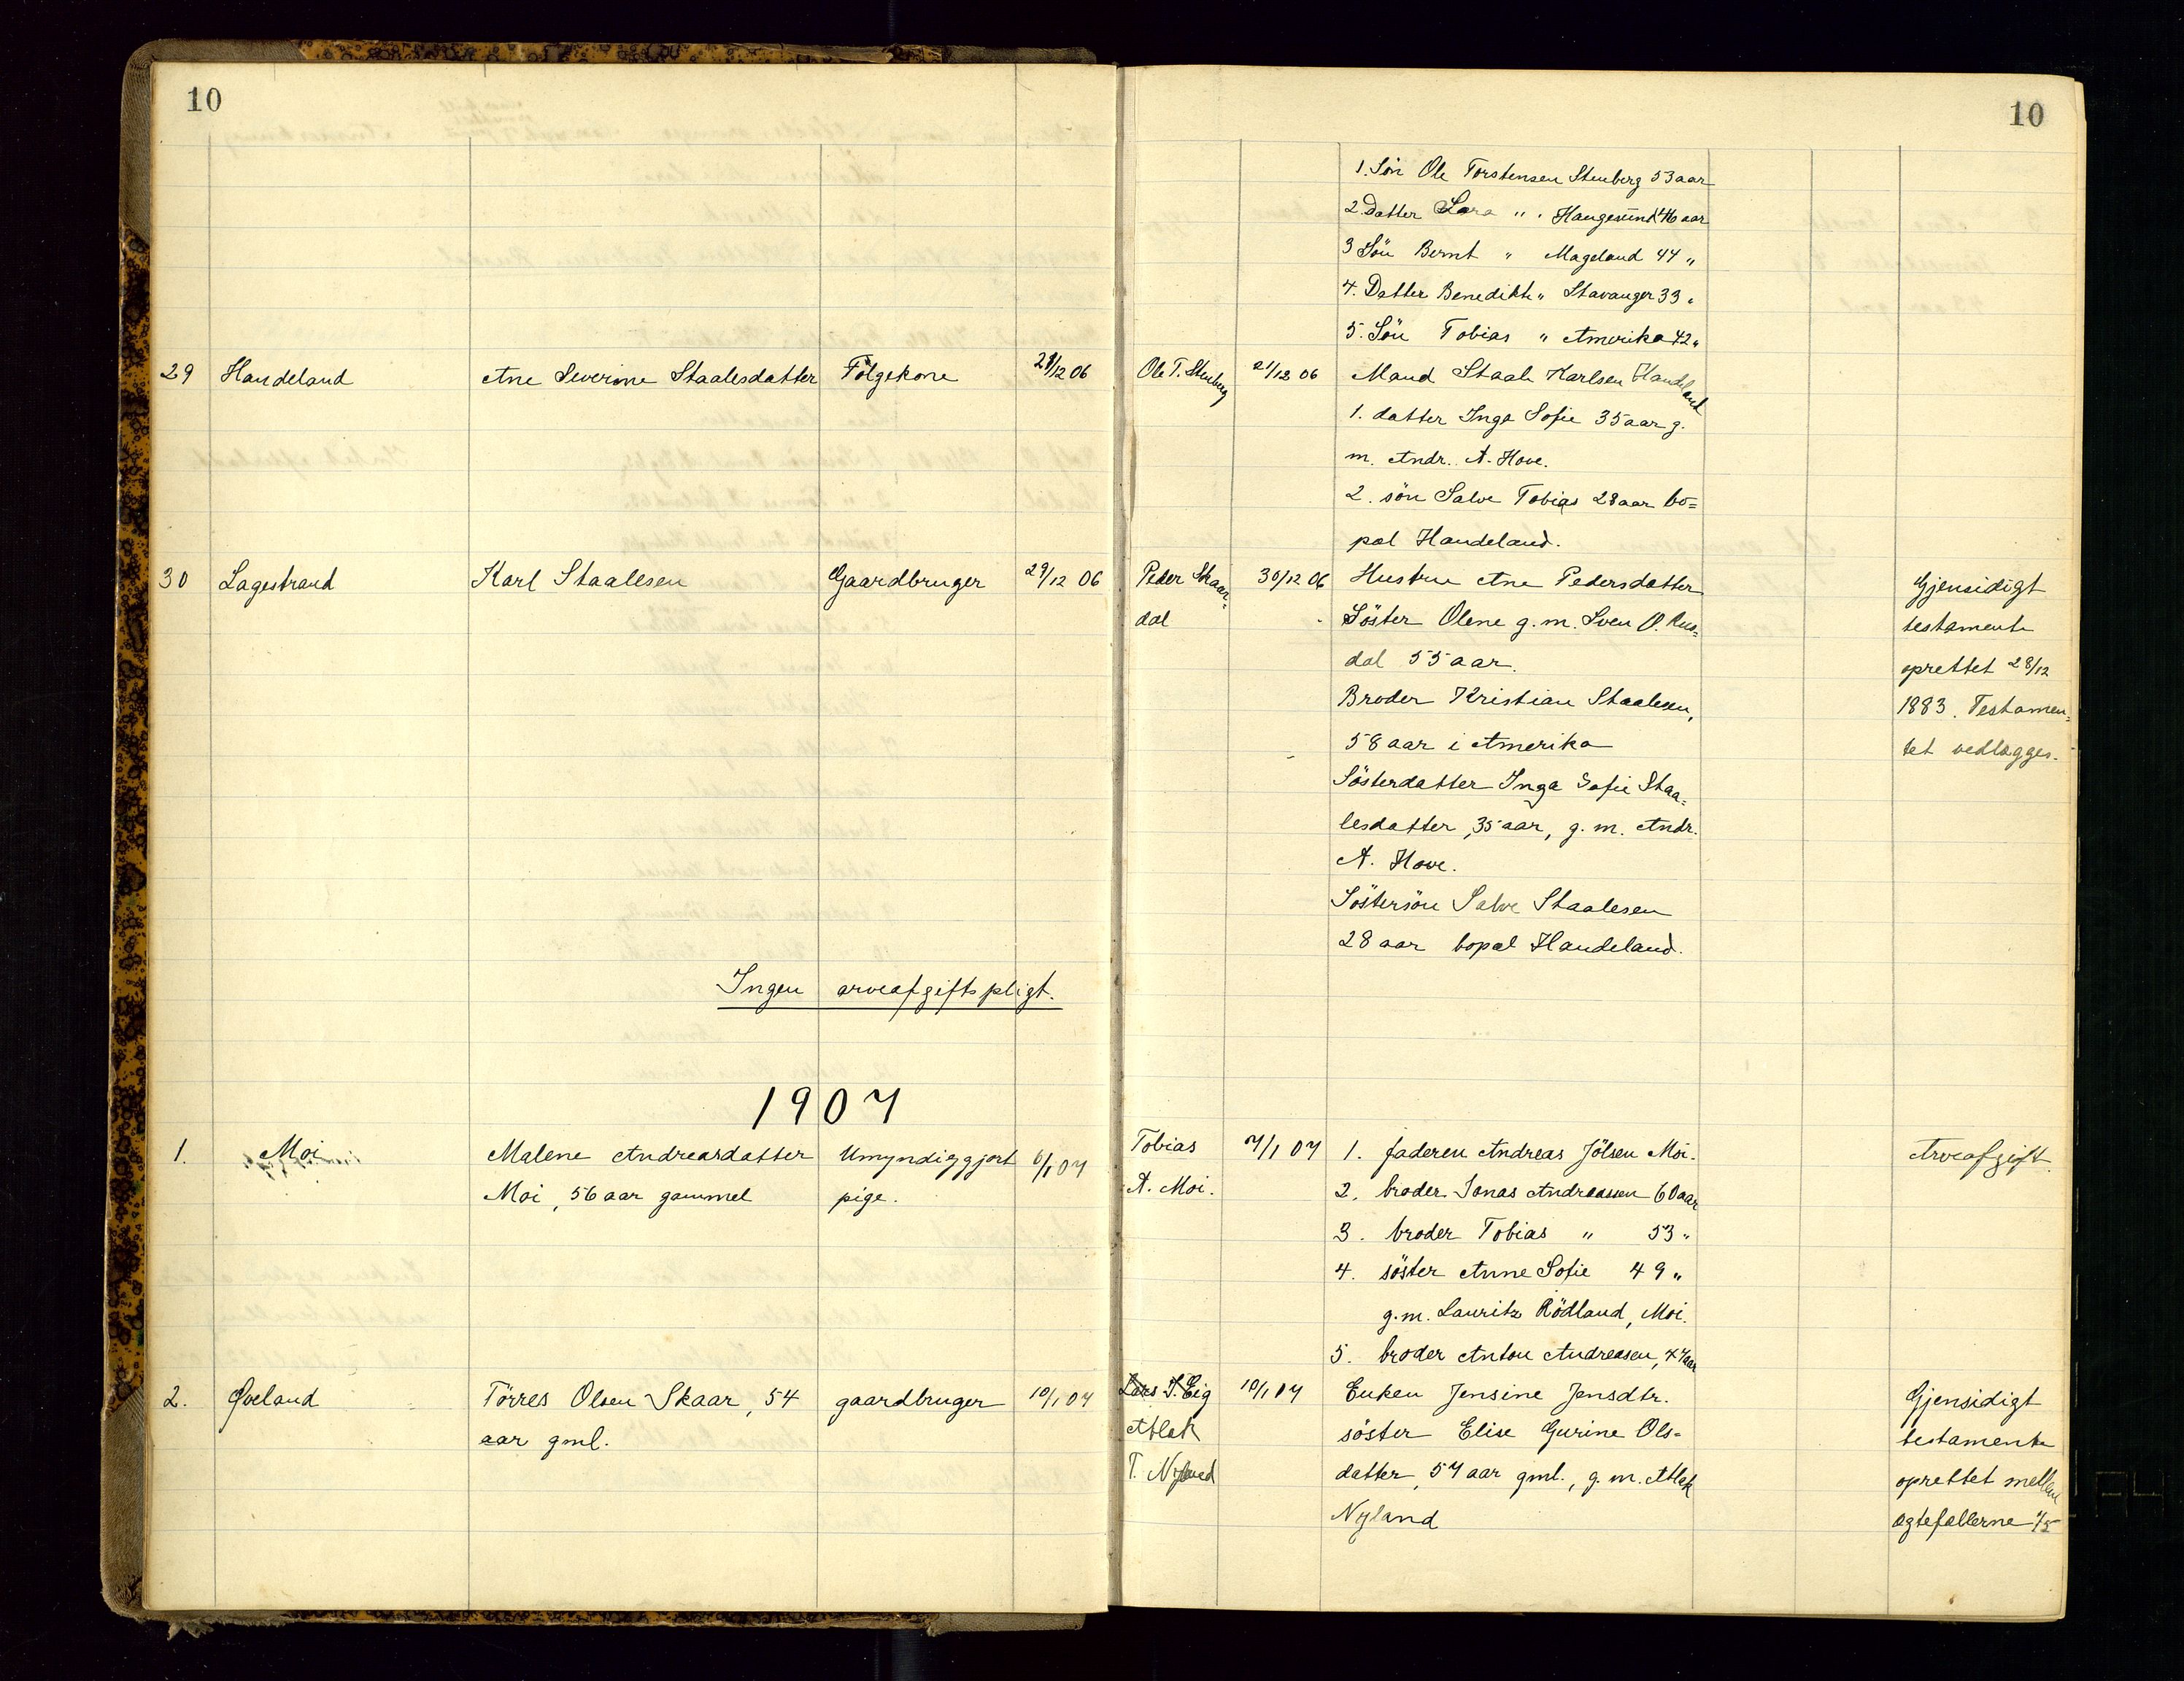 10
10
1. Sön Ole Torstensen Stenberg 53 aar
2. Datter Lara " " Haugesund 46 aar
3 Sön Bernt " Mageland 44 "
4. Datter Benedikte " Stavanger 33 "
5. Sön Tobias " Amerika 42 "
29 Handeland Ane Severine Staalesdatter Fölgekone 21/12 06 Ole T. Stenberg 21/12 06 Mand Staale Karlsen Handeland
1. datter Inga Sofie 35 aar g.
m. Andr. A. Hove.
2. sön Salve Tobias 28 aar bo=
pæl Handeland.
30 Lagestrand Karl Staalesen Gaardbruger 29/12 06 Peder Skaar= 30/12 06 Hustru Ane Pedersdatter Gjensidigt
dal Söster Olene g. m. Sven O. Rus= testamente
dal 55 aar. oprettet 28/12
Broder Kristian Staalesen, 1883. Testamen=
58 aar i Amerika tet vedlægges.
Sösterdatter Inga Sofie Staa=
lesdatter, 35 aar, g. m. Andr.
A. Hove.
Söstersön Salve Staalesen
28 aar bopæl Handeland.
Ingen arveafgiftspligt.
1907
1. Moi Malene Andreasdatter Umyndiggjort 6/1 07 Tobias 7/1 07 1. faderen Andreas Jölsen Moi. Arveafgift.
Moi, 56 aar gammel pige. A. Moi. 2. broder Jonas Andreassen 60 aar
3. broder Tobias " 53 "
4. söster Anne Sofie 49 "
g. m. Lauritz Rödland, Moi.
5. broder Anton Andreasen, 47 aar
2. Øveland Törres Olsen Skaar, 54 gaardbruger 10/1 07 Lars S. Eig 10/1 07 Enken Jensine Jensdtr. Gjensidigt
aar gml. Atlak söster Elise Gurine Ols- testamente
T. Nyland datter, 57 aar gml., g. m. Atlak oprettet mellem
Nyland ægtefællerne 1/5